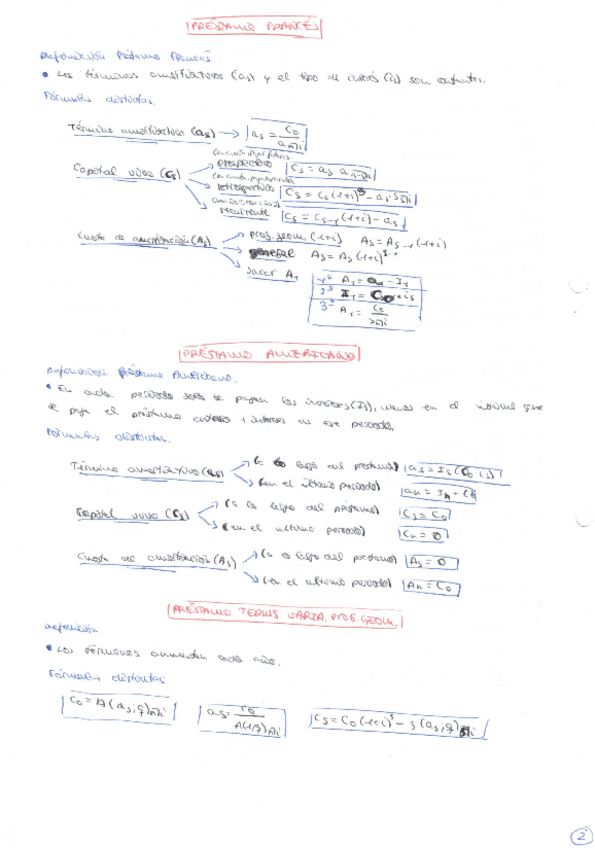 PRÉSTAMO FRANCÉS
Información Préstamo Francés.
• Los términos amortizativos (as) y el tipo de interés (is) son constantes.
Fórmulas distintas.
Término amortizativo (as) → as = C0 / an¬i
Capital vivo (Cs)
prospectivo Cs = as an-s¬i
retrospectivo Cs = C0 (1+i)^s - as Ss¬i
recurrente Cs = Cs-1 (1+i) - as
Cuota de amortización (As) → prog. geom. (1+i) As = As-1 (1+i)
general As = A1 (1+i)^s-1
sacar A1
1º A1 = a1 - I1
2º I1 = C0 · is
3º A1 = C0 / Sn¬i
PRÉSTAMO AMERICANO
Información Préstamo Americano.
• En cada periodo solo se pagan los intereses (Is), menos en el último que
se paga el préstamo entero + intereses de ese periodo.
Fórmulas distintas.
Término amortizativo (as) → (a lo largo del préstamo) as = Is (C0 · is)
(en el último periodo) an = In + C0
Capital vivo (Cs) → (a lo largo del préstamo) Cs = C0
(en el último periodo) Cn = 0
Cuota de amortización (As) → (a lo largo del préstamo) As = 0
(en el último periodo) An = C0
PRÉSTAMO TERMS VARIA. PROG. GEOM.
Información.
• Los términos aumentan cada año.
Fórmulas distintas
C0 = A(as; q)n¬i as = C0 / A(1,q)n¬i Cs = C0 (1+i)^s - S(as; q)s¬i
2